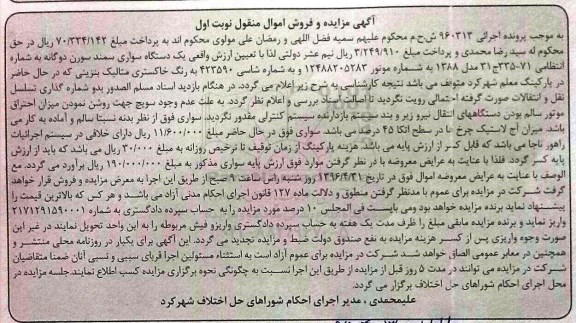 آگهی مزایده و فروش اموال منقول نوبت اول
به موجب پرونده اجرائی ۹۶۰۳۱۳ ش‌ح‌م محکوم علیهم سمیه فضل اللهی و رمضان علی مولوی محکوم اند به پرداخت مبلغ ۷۰/۳۳۴/۱۴۲ ریال در حق
محکوم له سید رضا محمدی و پرداخت مبلغ ۳/۲۴۹/۹۱۰ ریال نیم عشر دولتی لذا با تعیین ارزش واقعی یک دستگاه سواری سمند سورن دوگانه به شماره
انتظامی ۷۱-۳۳۵ج۳۱ مدل ۱۳۸۸ به شماره موتور ۱۲۴۸۸۲۰۵۲۸۳ و به شماره شاسی ۴۲۳۵۹۰ به رنگ خاکستری متالیک بنزینی که در حال حاضر
در پارکینگ معلم شهرکرد متوقف می باشد نتیجه کارشناسی به شرح زیر اعلام می گردد. در هنگام بازدید اسناد مسلم الصدور بدو شماره گذاری تسلسل
نقل و انتقالات صورت گرفته احتمالی رویت نگردید تا اصالت اسناد بررسی و اعلام نظر گردد. به علت عدم وجود سویچ جهت روشن نمودن میزان احتراق
موتور سالم بودن دستگاههای انتقال نیرو زیر و بند سیستم بازدارنده سیستم کنترلی مقدور نگردید، سواری فوق از نظر بدنه نسبتا سالم و آماده به کار می
باشد. میزان آج لاستیک چرخ ها در سطح اتکا ۴۵ درصد می باشد. سواری فوق در حال حاضر مبلغ ۱۱/۶۰۰/۰۰۰ ریال دارای خلافی در سیستم اجرائیات
راهور ناجا می باشد که قابل کسر از ارزش پایه می باشد. هزینه پارکینگ از زمان توقیف تا ترخیص روزانه به مبلغ ۳۰/۰۰۰ ریال می باشد که باید از ارزش
پایه کسر گردد. فلذا با عنایت به عرایض معروضه با در نظر گرفتن موارد فوق ارزش پایه سواری مذکور به مبلغ ۱۹۰/۰۰۰/۰۰۰ ریال برآورد می گردد. مع
الوصف با عنایت به عرایض معروضه اموال فوق در تاریخ ۱۳۹۶/۴/۳۱ روز شنبه راس ساعت ۹ صبح از طریق این اجرا به معرض مزایده و فروش قرار خواهد
گرفت شرکت در مزایده برای عموم با مدنظر گرفتن منطوق و دلالت ماده ۱۲۷ قانون اجرای احکام مدنی آزاد می باشد و هر کس که بالاترین قیمت را
پیشنهاد نماید برنده مزایده خواهد بود ومی بایست فی المجلس ۱۰ درصد مورد مزایده را به حساب سپرده دادگستری به شماره ۲۱۷۱۲۹۱۵۹۰۰۰۱
واریز نماید و برنده مزایده مابقی مبلغ را ظرف مدت یک هفته به حساب سپرده دادگستری واریزو فیش مربوطه را به این واحد تحویل نمایند در غیر این
صورت وجوه واریزی پس از کسر هزینه مزایده به نفع صندوق دولت ضبط و مزایده تجدید می گردد. این آگهی برای یکبار در روزنامه محلی منتشر و
همچنین در معابر عمومی الصاق خواهد شد شرکت در مزایده برای عموم آزاد است به استثناء مسئولین اجرا قربای سببی و نسبی آنان ضمنا متقاضیان
شرکت در مزایده می توانند در مدت ۵ روز قبل از مزایده از طریق این اجرا نسبت به چگونگی نحوه برگزاری مزایده کسب اطلاع نمایند. جلسه مزایده در
محل اجرای احکام شوراهای حل اختلاف برگزار می گردد.
علیمحمدی ، مدیر اجرای احکام شوراهای حل اختلاف شهرکرد